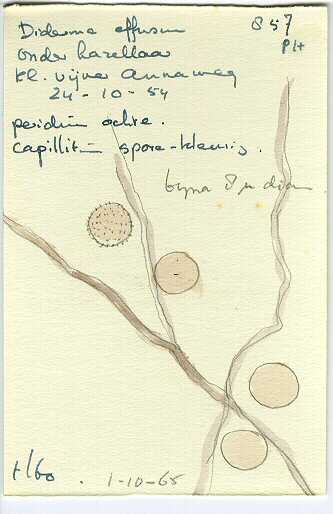 Diderma effusum
857
PH
onder hazelaar
kl. vijver Annaweg
24-10-54
peridium ochre.
capillitium spore-kleurig.
bijna 8 µ diam
1-10-65